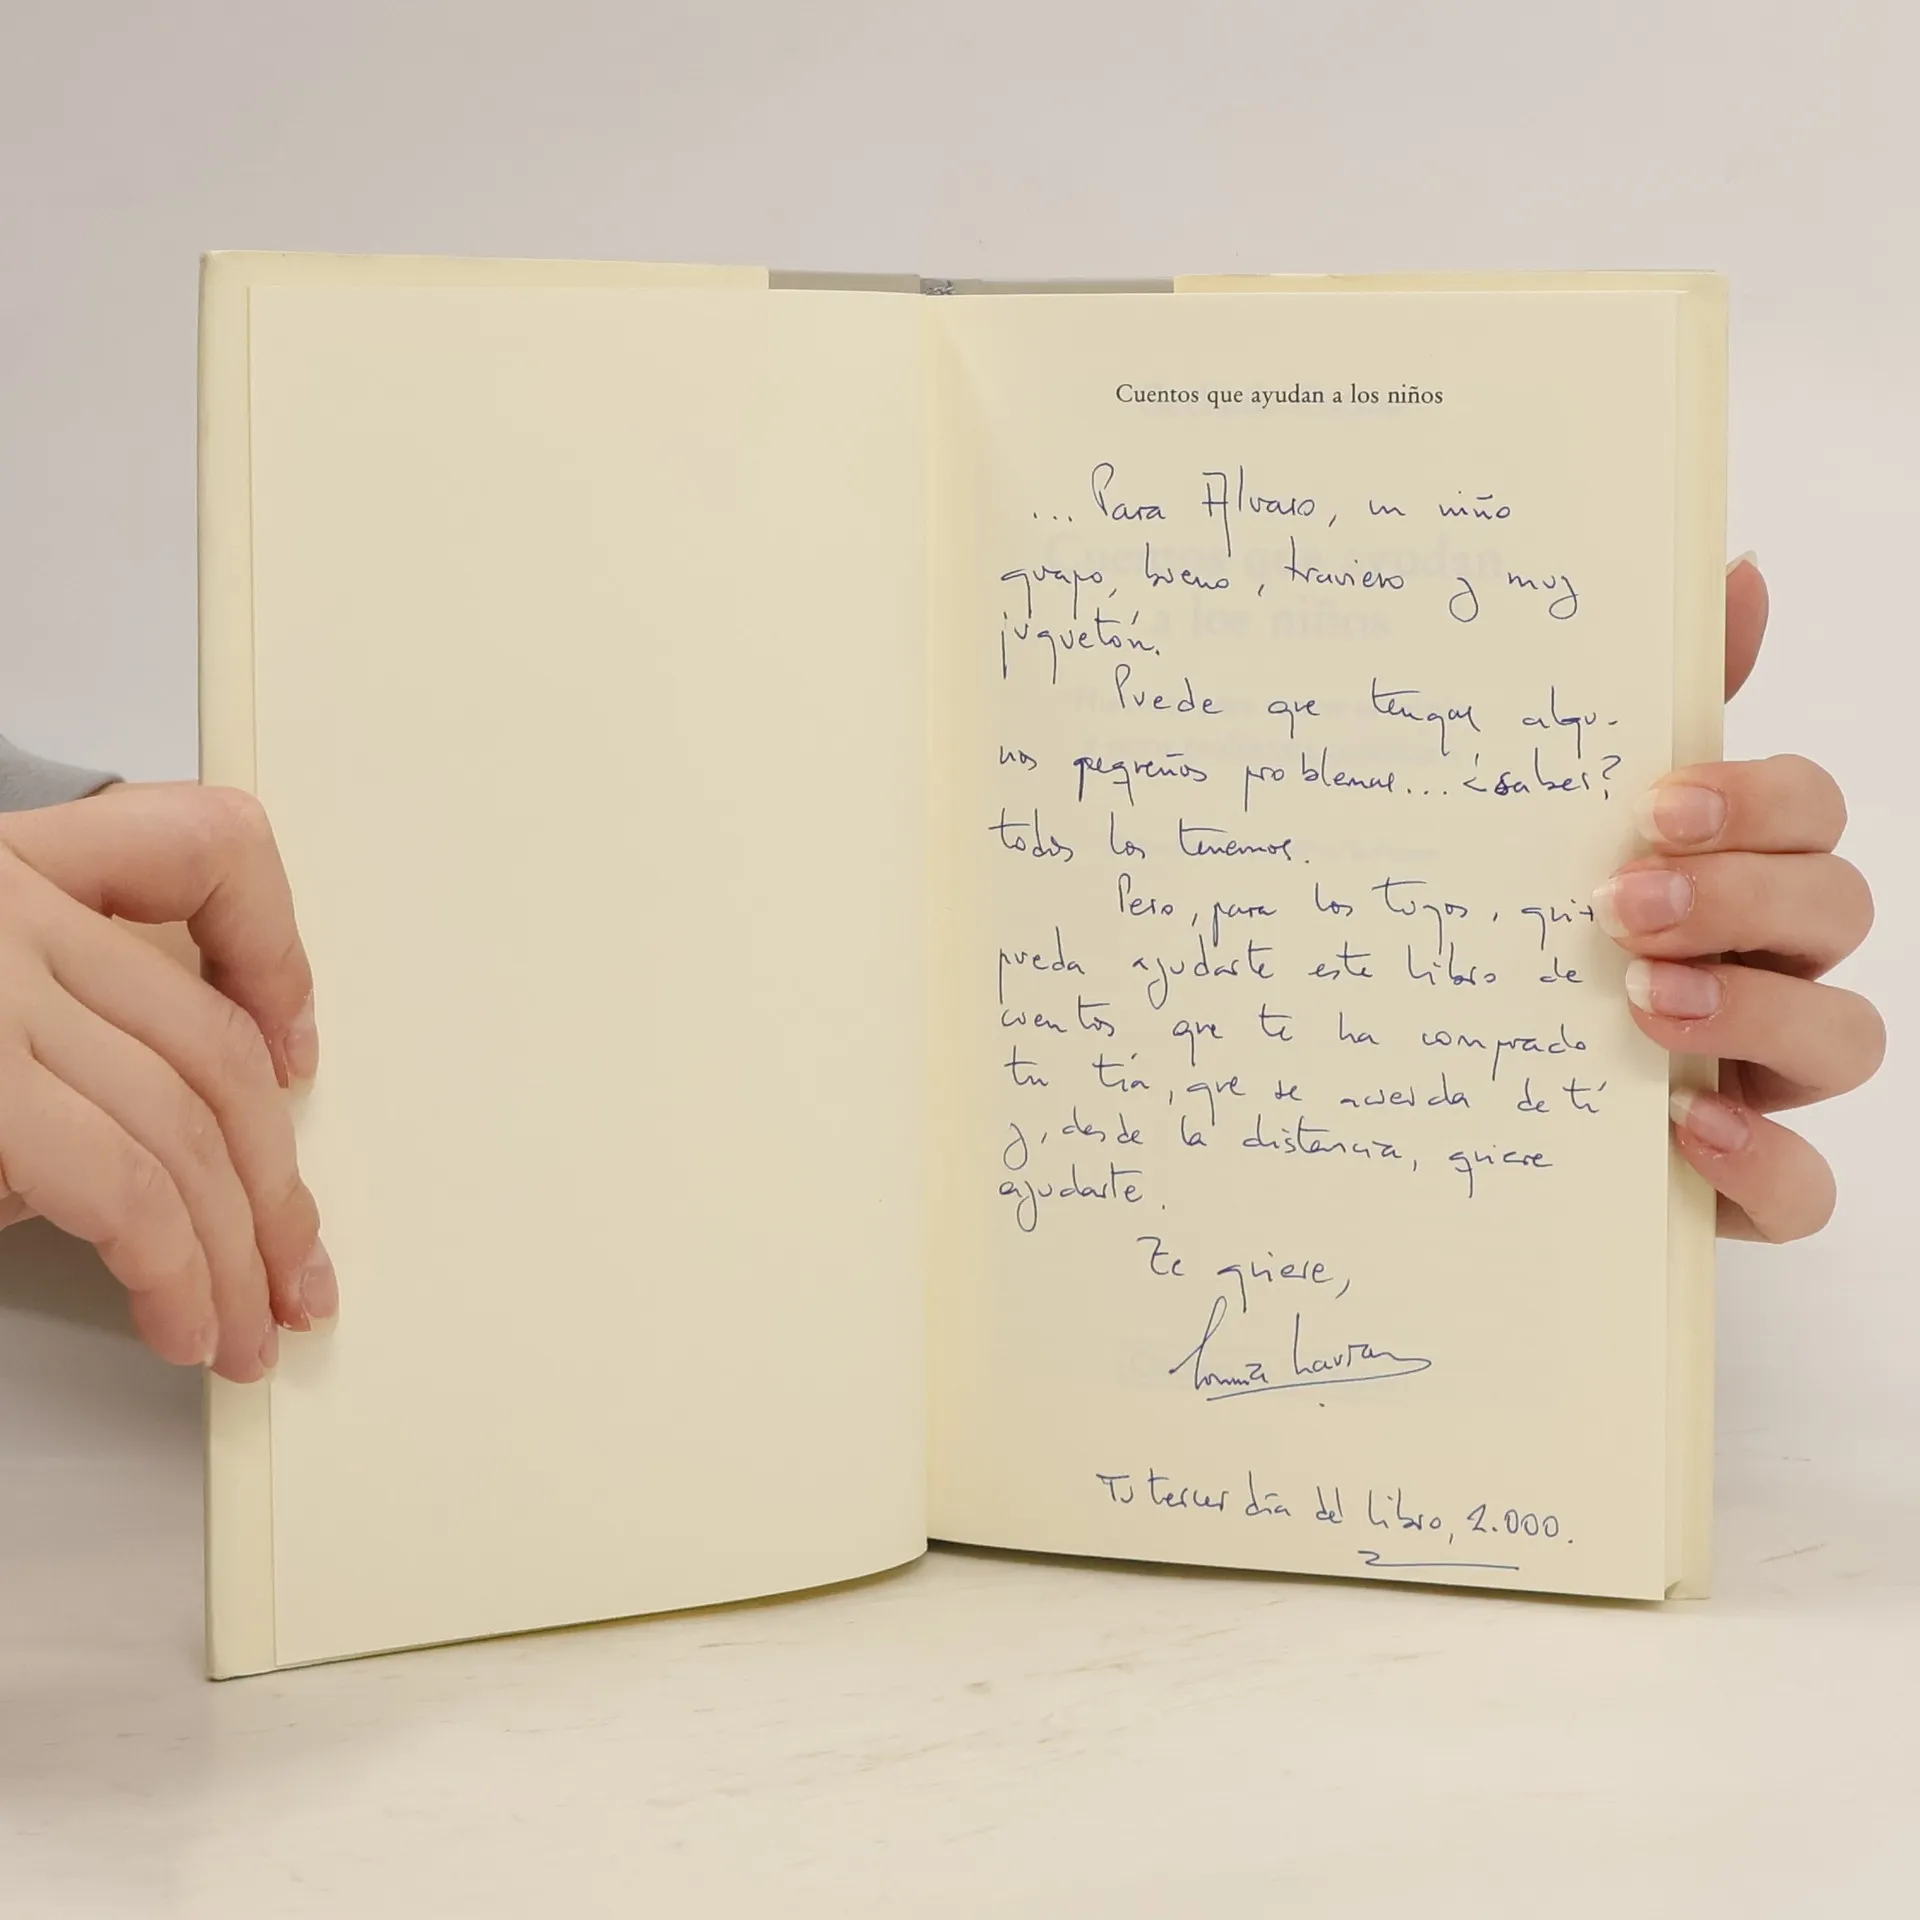 Cuentos que ayudan a los niños
... Para Alvaro, un niño
guapo, bueno, travieso y muy
juguetón.
Puede que tengas algu-
nos pequeños problemas... ¿sabes?
todos los tenemos.
Pero, para los tuyos, quizá
pueda ayudarte este libro de
cuentos que te ha comprado
tu tía, que se acuerda de tí
y, desde la distancia, quiere
ayudarte.
Te quiere,
Tu tercer día del libro, 2.000.